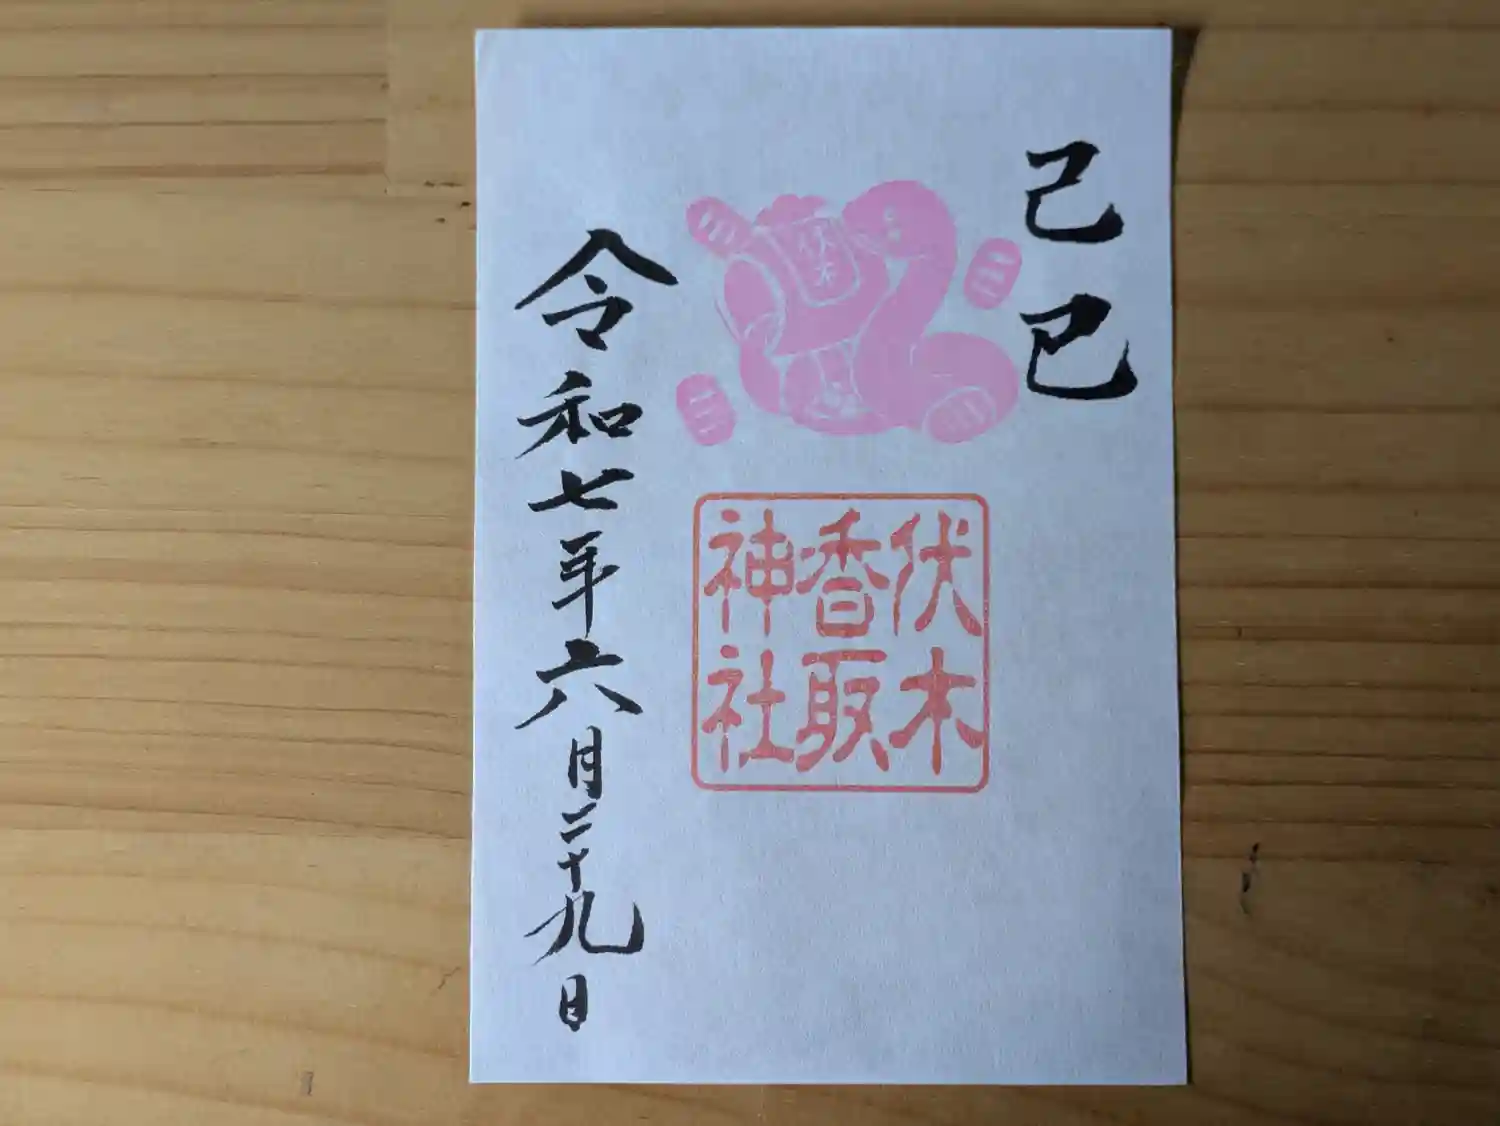 己巳
伏木
伏木
香取
神社
令和七年六月二十九日